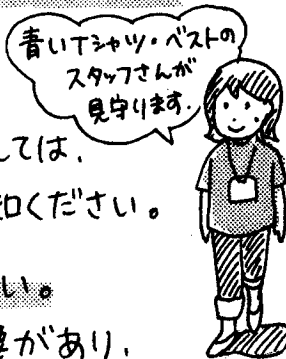 青いTシャツ・ベストの
スタッフさんが
見守ります。
ては、
ください。
い。
があり、